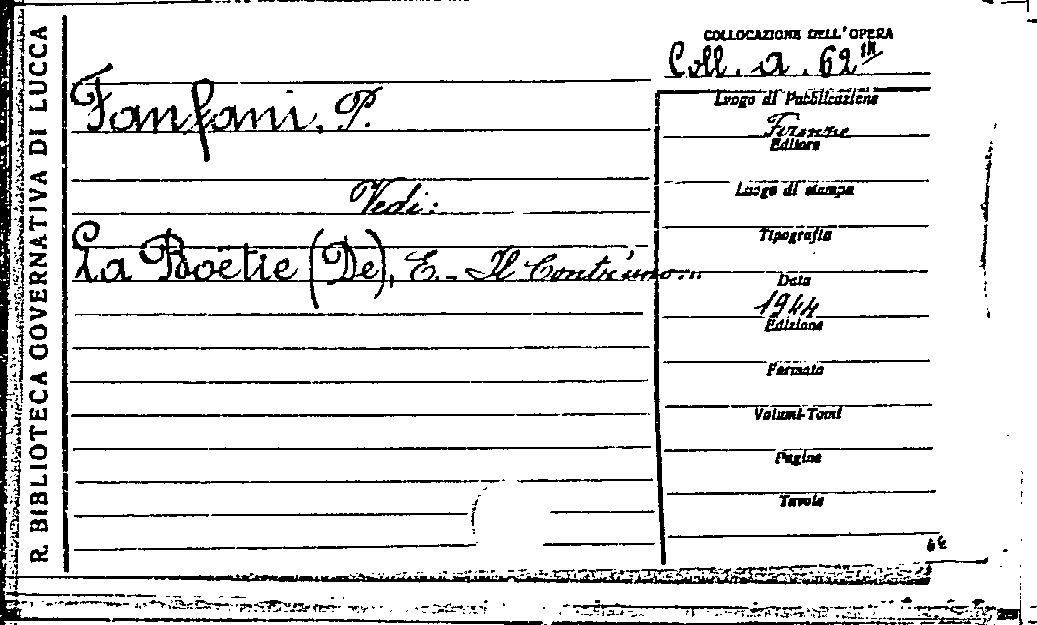 R. BIBLIOTECA GOVERNATIVA DI LUCCA
COLLOCAZIONE DELL'OPERA
Coll. a. 62
Fanfani, P.
Vedi:
La Boëtie (De), E. - Il Contr'uno...
Luogo di Pubblicazione
Firenze
Editore
Luogo di stampa
Tipografia
Data
1944
Edizione
Formato
Volumi-Tomi
Pagine
Tavole